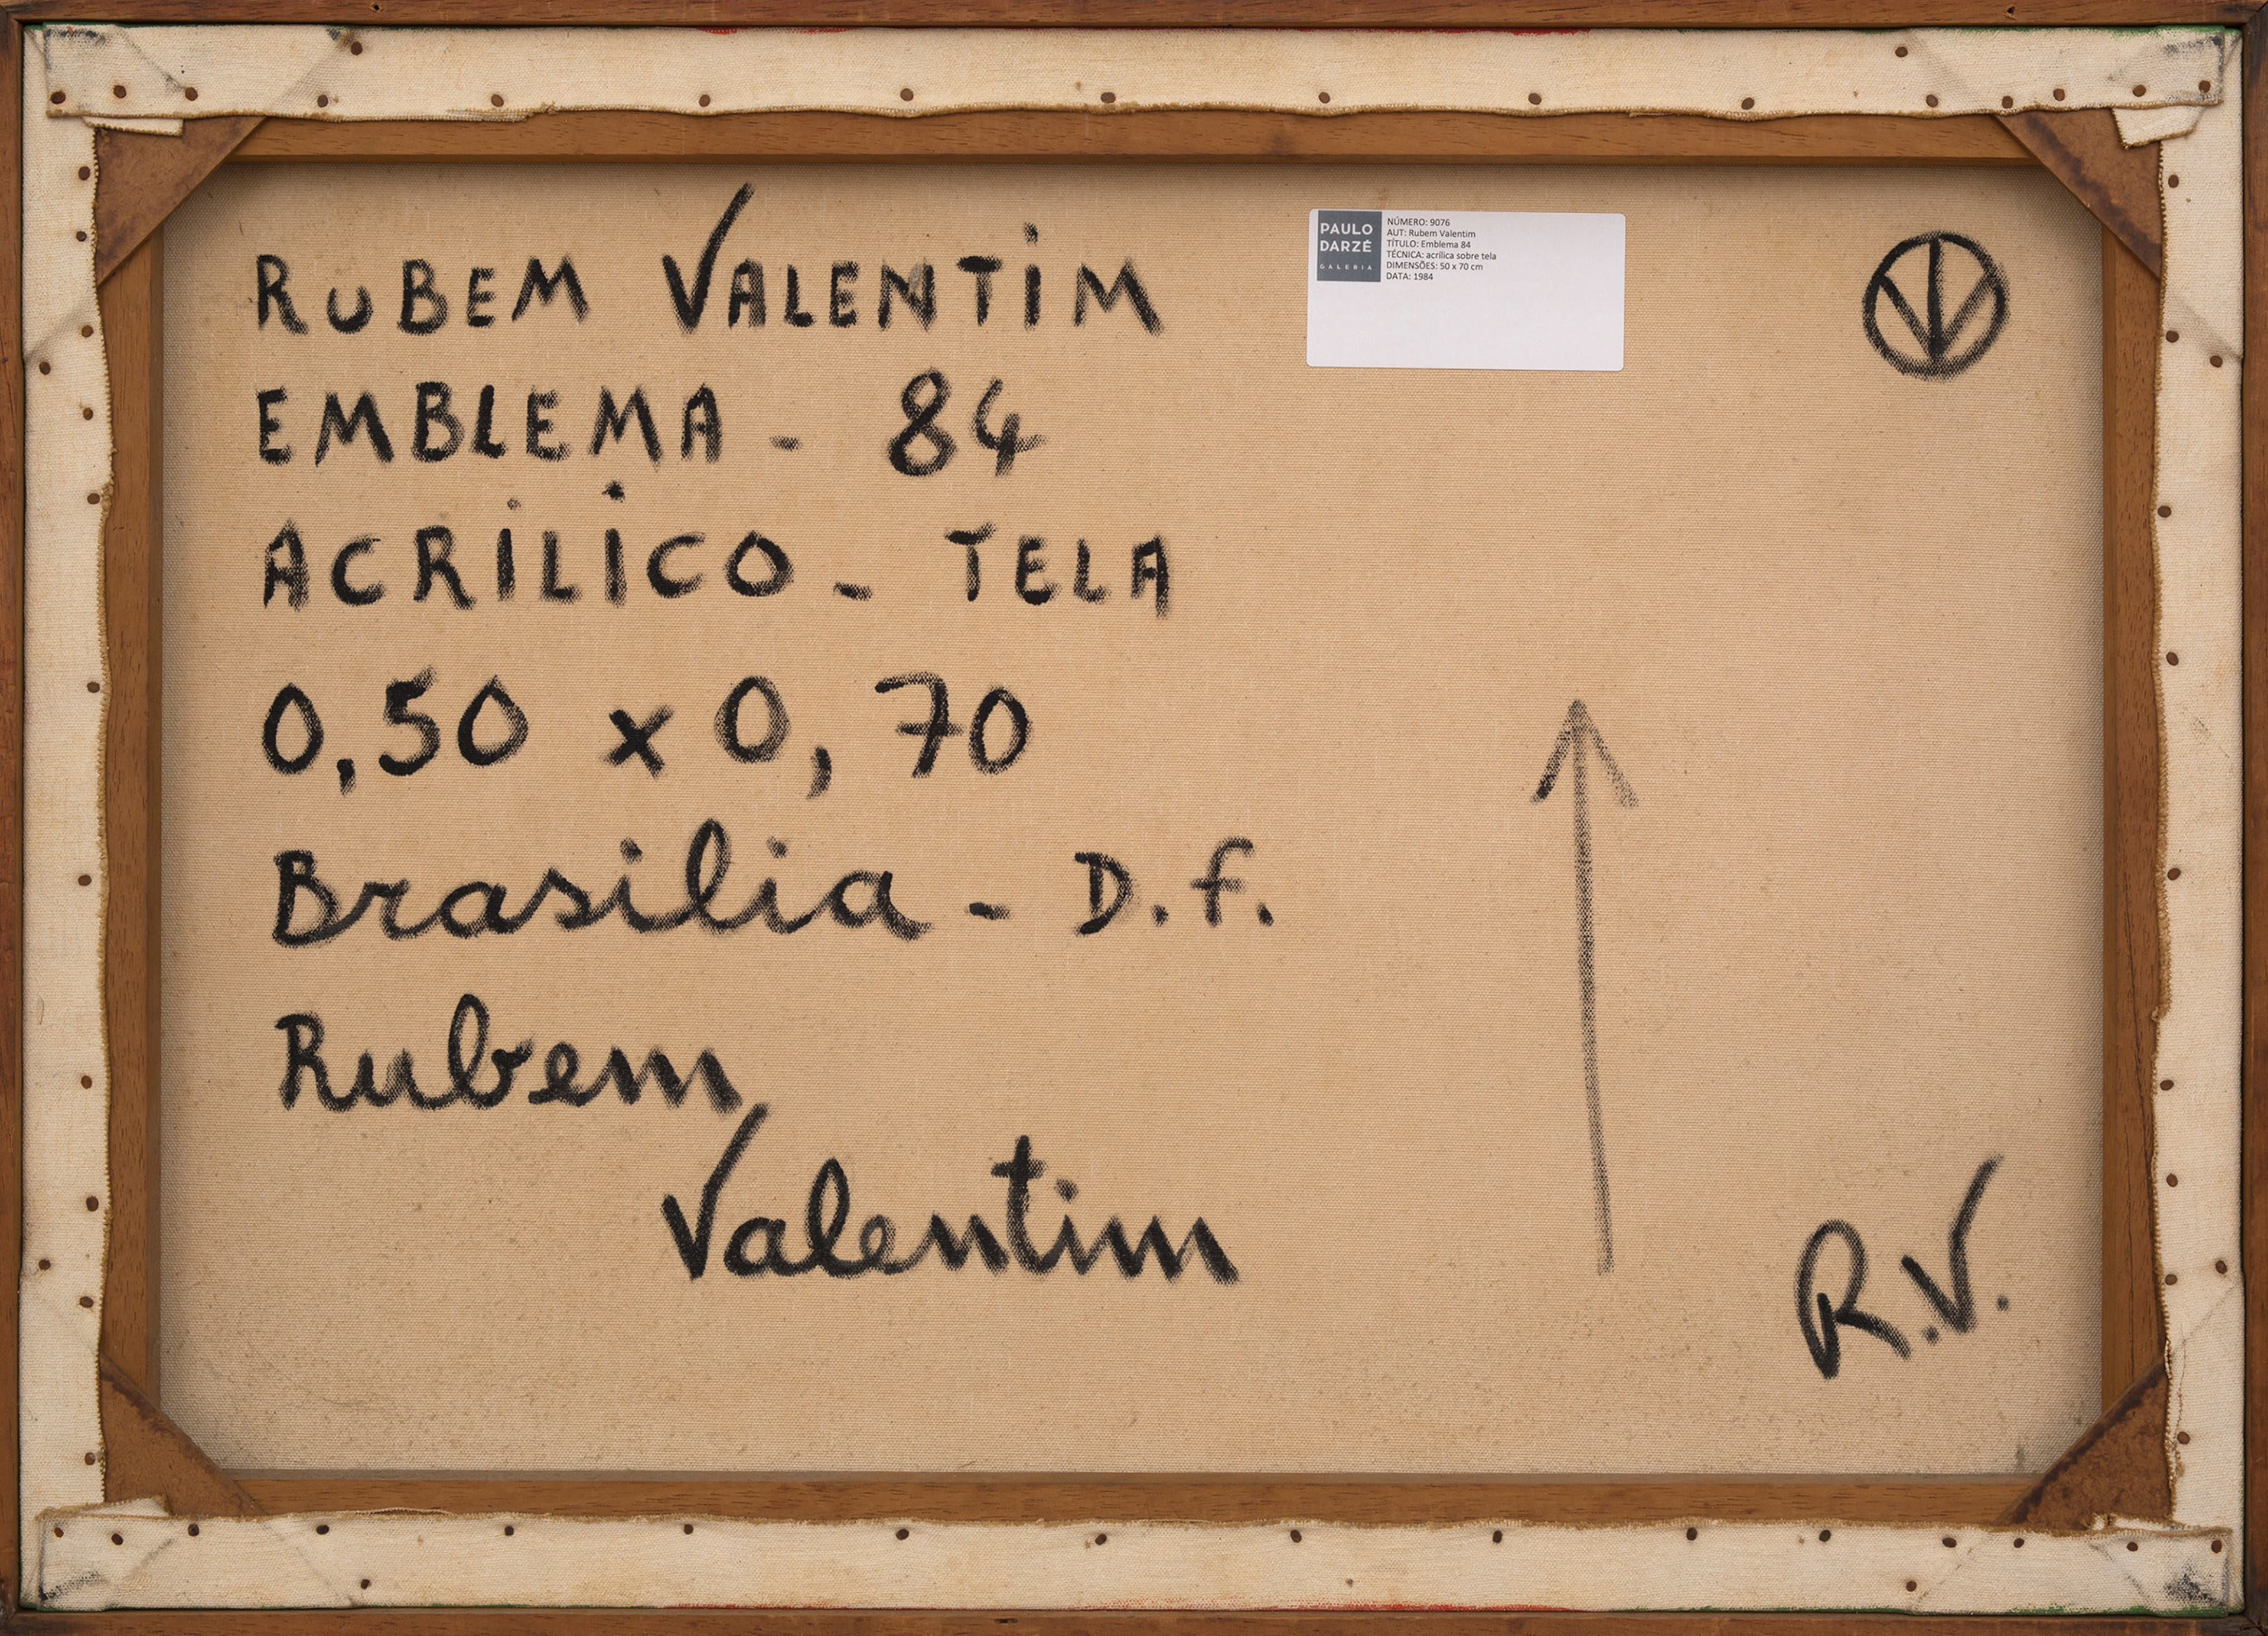 RUBEM VALENTIM
EMBLEMA - 84
ACRILICO - TELA
0,50 x 0,70
Brasilia - D.F.
Rubem
Valentim
PAULO
DARZÉ
GALERIA
NÚMERO: 9076
AUT: Rubem Valentim
TÍTULO: Emblema 84
TÉCNICA: acrílica sobre tela
DIMENSÕES: 50 x 70 cm
DATA: 1984
R.V.